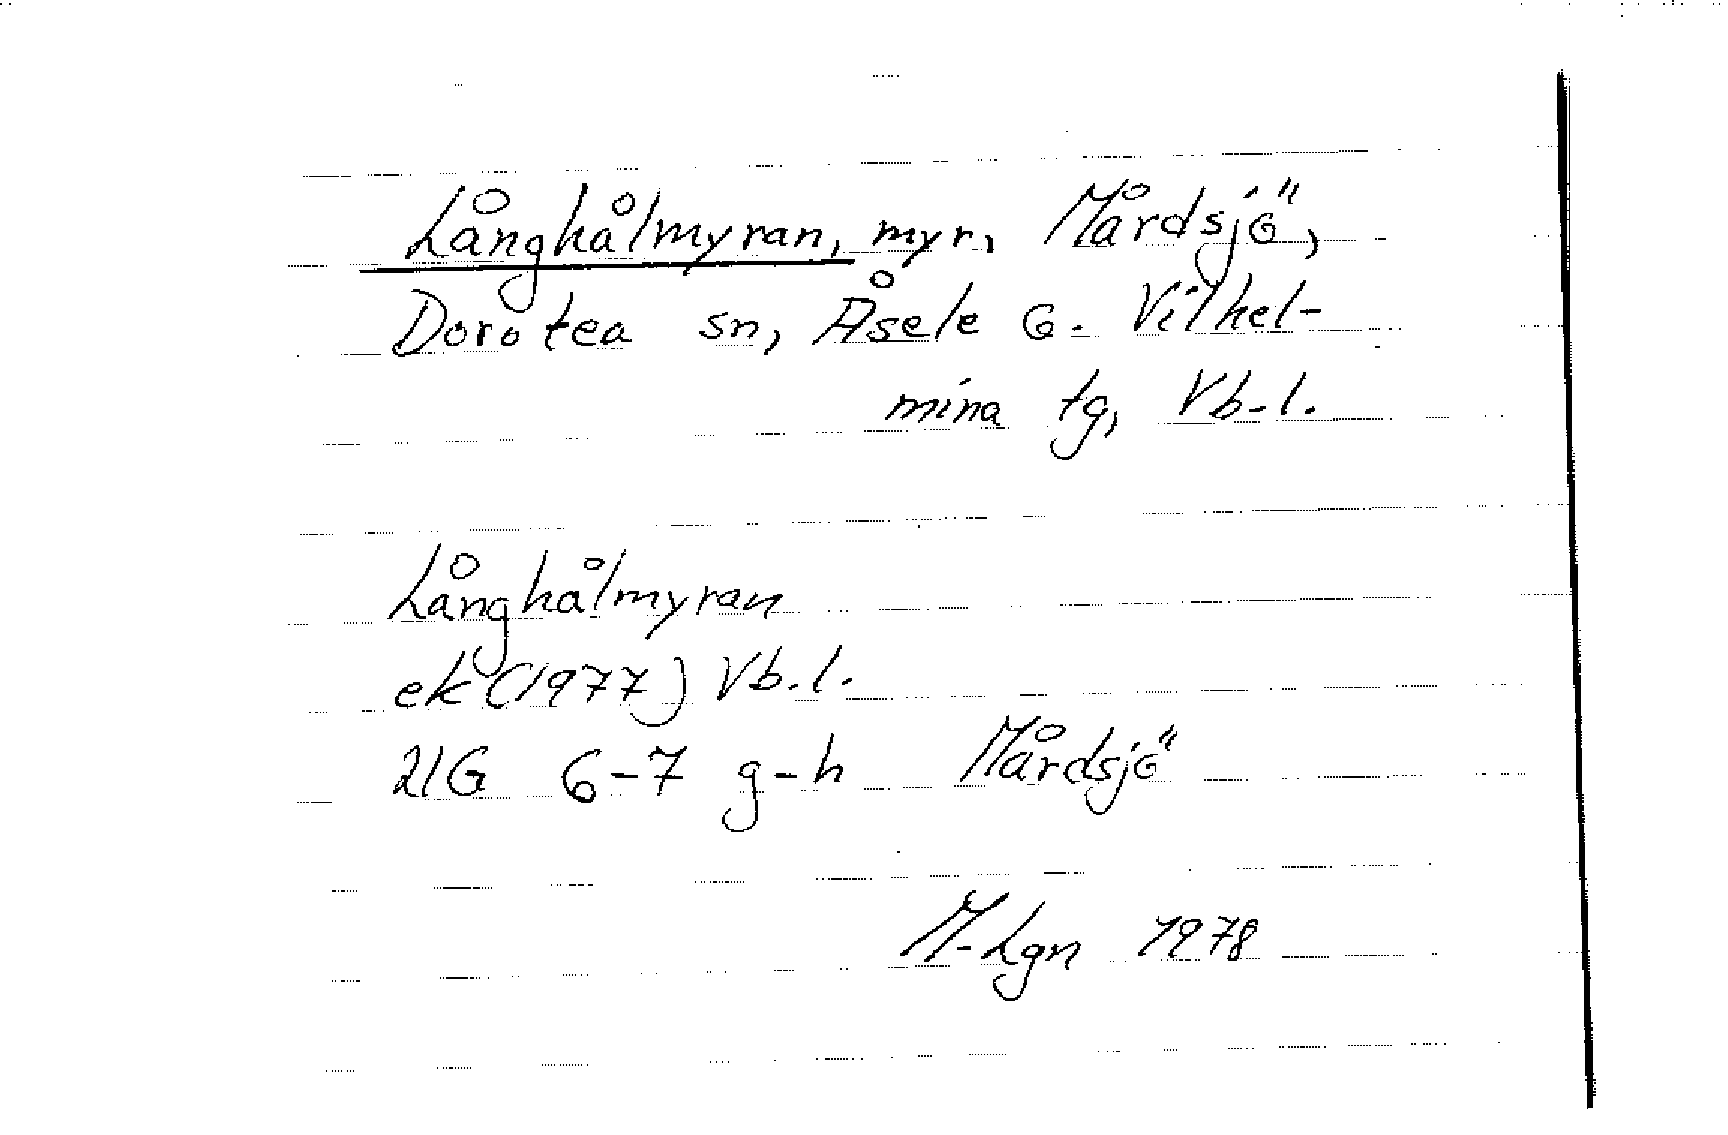 Långhålmyran, myr, Mårdsjö,
Dorotea sn, Åsele o. Vilhel-
mina tg, Vb.l.
Långhålmyran
ek (1977) Vb.l.
21G 6-7 g-h Mårdsjö
M-Lgn 1978